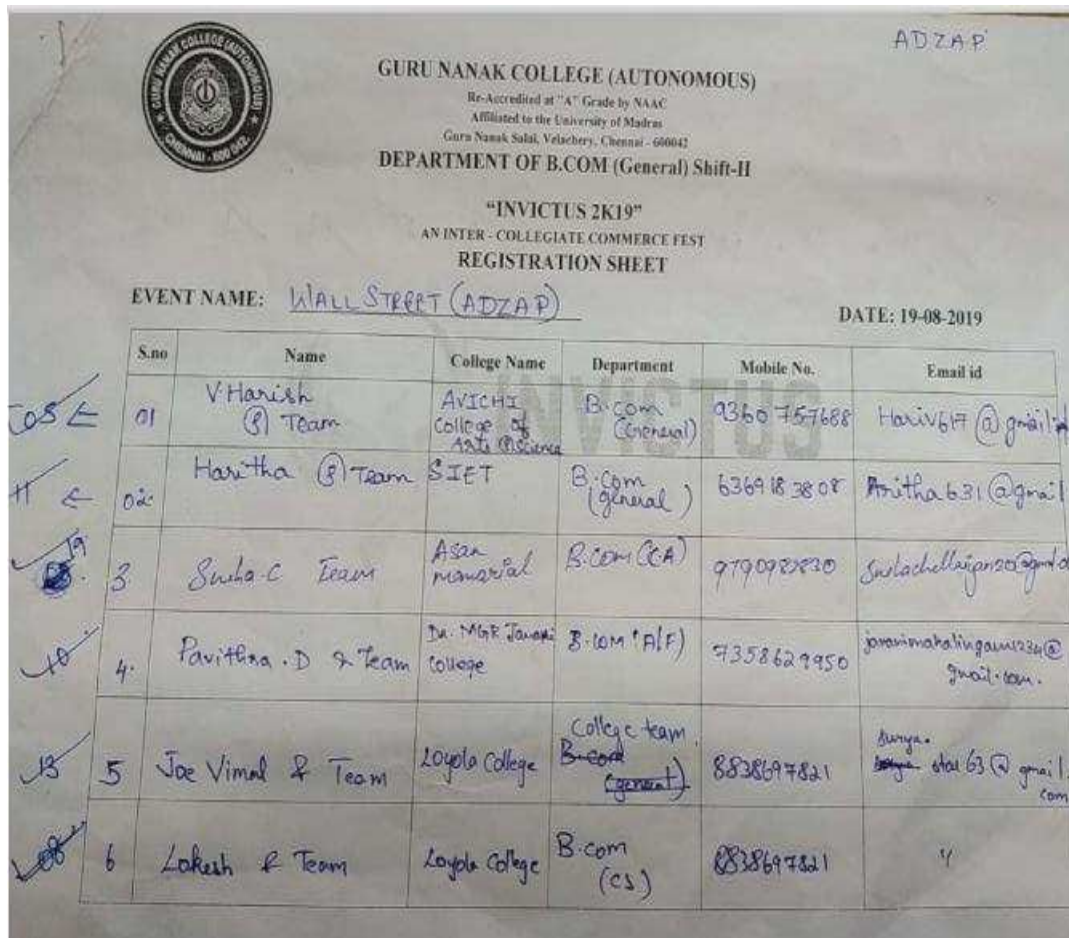 ADZAP
GURU NANAK COLLEGE (AUTONOMOUS)
CHENNAI - 600 042.
GURU NANAK COLLEGE (AUTONOMOUS)
Re-Accredited at "A" Grade by NAAC
Affiliated to the University of Madras
Guru Nanak Salai, Velachery, Chennai - 600042
DEPARTMENT OF B.COM (General) Shift-II
"INVICTUS 2K19"
AN INTER - COLLEGIATE COMMERCE FEST
REGISTRATION SHEET
EVENT NAME: WALL STREET (ADZAP)
DATE: 19-08-2019
S.no Name College Name Department Mobile No. Email id
INVICTUS
05 01 V Harish & Team AVICHI College of Arts & Science B.com (General) 9360757688 Hariv617@gmail
11 02. Haritha & Team SIET B.Com (general) 6369183808 @gmail
19 3 Team Asan B.com (CA)
10 4. Pavithra.D & Team Dr. MGR College B.COM (A/F) 7358629950 gmail.com.
13 5 Joe Vimal & Team Loyola College College team B.com (general) 8838697821 surya. star63@gmail.com
08 6 Lokesh & Team Loyola College B.com (CS) 8838697821 "